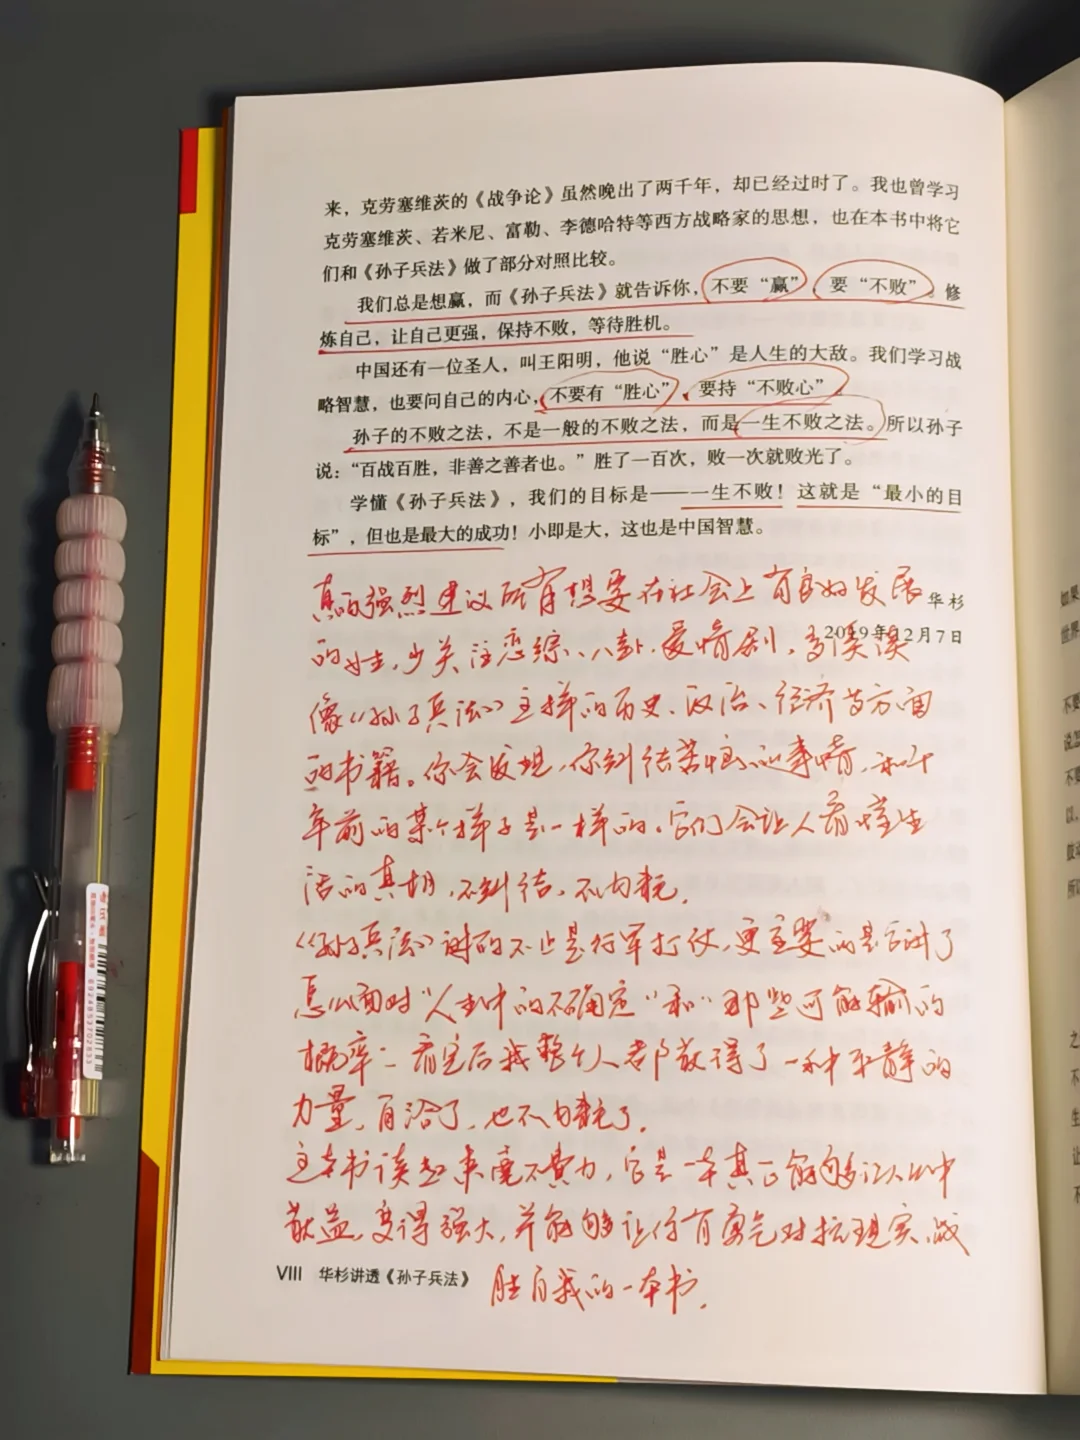 来，克劳塞维茨的《战争论》虽然晚出了两千年，却已经过时了。我也曾学习
克劳塞维茨、若米尼、富勒、李德哈特等西方战略家的思想，也在本书中将它
们和《孙子兵法》做了部分对照比较。
我们总是想赢，而《孙子兵法》就告诉你，不要“赢”，要“不败”。修
炼自己，让自己更强，保持不败，等待胜机。
中国还有一位圣人，叫王阳明，他说“胜心”是人生的大敌。我们学习战
略智慧，也要问自己的内心，不要有“胜心”，要持“不败心”。
孙子的不败之法，不是一般的不败之法，而是一生不败之法。所以孙子
说：“百战百胜，非善之善者也。”胜了一百次，败一次就败光了。
学懂《孙子兵法》，我们的目标是——一生不败！这就是“最小的目
标”，但也是最大的成功！小即是大，这也是中国智慧。
华杉
2019年12月7日
真的强烈建议所有想要在社会上有良好发展
的女生，少关注恋综、八卦、爱情剧，多读读
像《孙子兵法》这样的历史、政治、经济等方面
的书籍。你会发现，你纠结苦恼的事情，和千
年前的某个样子是一样的。它们会让人看懂生
活的真相，不纠结、不内耗。
《孙子兵法》讲的不止是行军打仗，更主要的是它讲了
怎么面对“人生中的不确定”和“那些可能输的
概率”，看完后我整个人都散得了一种平静的
力量，自洽了，也不内耗了。
这本书读起来毫不费力，它是一本真正能够让人从中
获益，变得强大，并能够让你有勇气对抗现实、战
胜自我的一本书。
VIII 华杉讲透《孙子兵法》
6924853702533
如果
世界
不要
说怎
不要
以，
所以
之
不
生
让
不